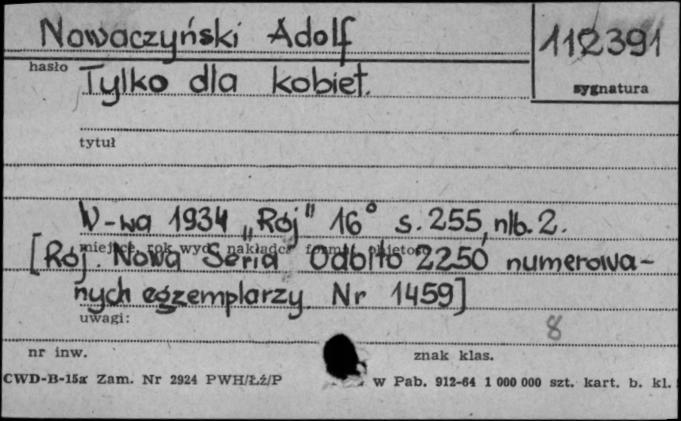 Nowaczyński Adolf
112391
hasło
Tylko dla kobiet.
sygnatura
tytuł
W-wa 1934 „Rój" 16° s. 255, nlb. 2.
miejsce, rok wyd. nakładca format objętość
[Rój. Nowa Seria Odbito 2250 numerowa-
nych egzemplarzy. Nr 1459]
uwagi:
8
nr inw.
znak klas.
CWD-B-15a Zam. Nr 2924 PWH/Łź/P
w Pab. 912-64 1 000 000 szt. kart. b. kl.